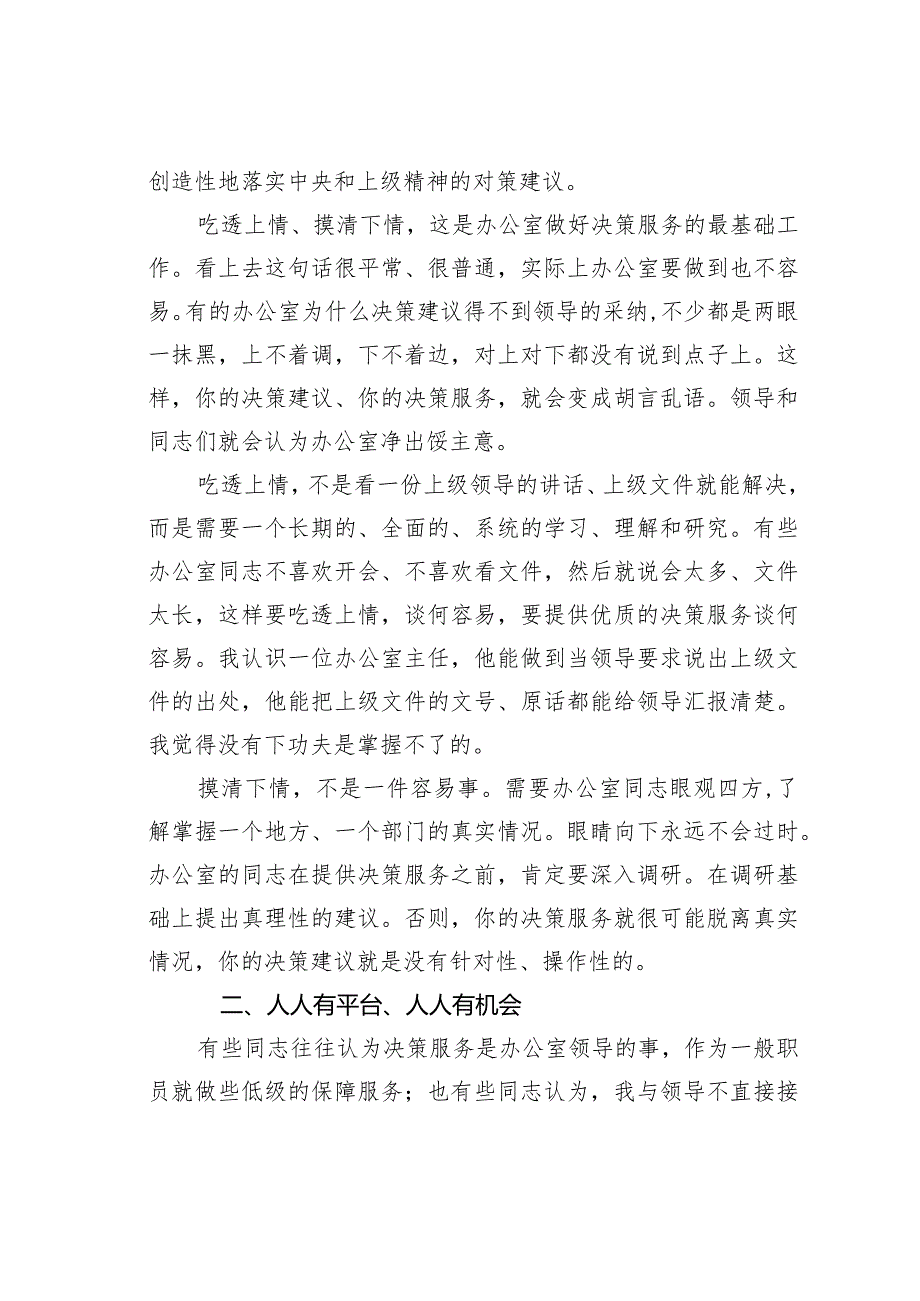 创造性地落实中央和上级精神的对策建议。
吃透上情、摸清下情，这是办公室做好决策服务的最基础工
作。看上去这句话很平常、很普通，实际上办公室要做到也不容
易。有的办公室为什么决策建议得不到领导的采纳,不少都是两眼
一抹黑，上不着调，下不着边，对上对下都没有说到点子上。这
样，你的决策建议、你的决策服务，就会变成胡言乱语。领导和
同志们就会认为办公室净出馊主意。
吃透上情，不是看一份上级领导的讲话、上级文件就能解决，
而是需要一个长期的、全面的、系统的学习、理解和研究。有些
办公室同志不喜欢开会、不喜欢看文件，然后就说会太多、文件
太长，这样要吃透上情，谈何容易，要提供优质的决策服务谈何
容易。我认识一位办公室主任，他能做到当领导要求说出上级文
件的出处，他能把上级文件的文号、原话都能给领导汇报清楚。
我觉得没有下功夫是掌握不了的。
摸清下情，不是一件容易事。需要办公室同志眼观四方,了
解掌握一个地方、一个部门的真实情况。眼睛向下永远不会过时。
办公室的同志在提供决策服务之前，肯定要深入调研。在调研基
础上提出真理性的建议。否则，你的决策服务就很可能脱离真实
情况，你的决策建议就是没有针对性、操作性的。
二、人人有平台、人人有机会
有些同志往往认为决策服务是办公室领导的事，作为一般职
员就做些低级的保障服务；也有些同志认为，我与领导不直接接